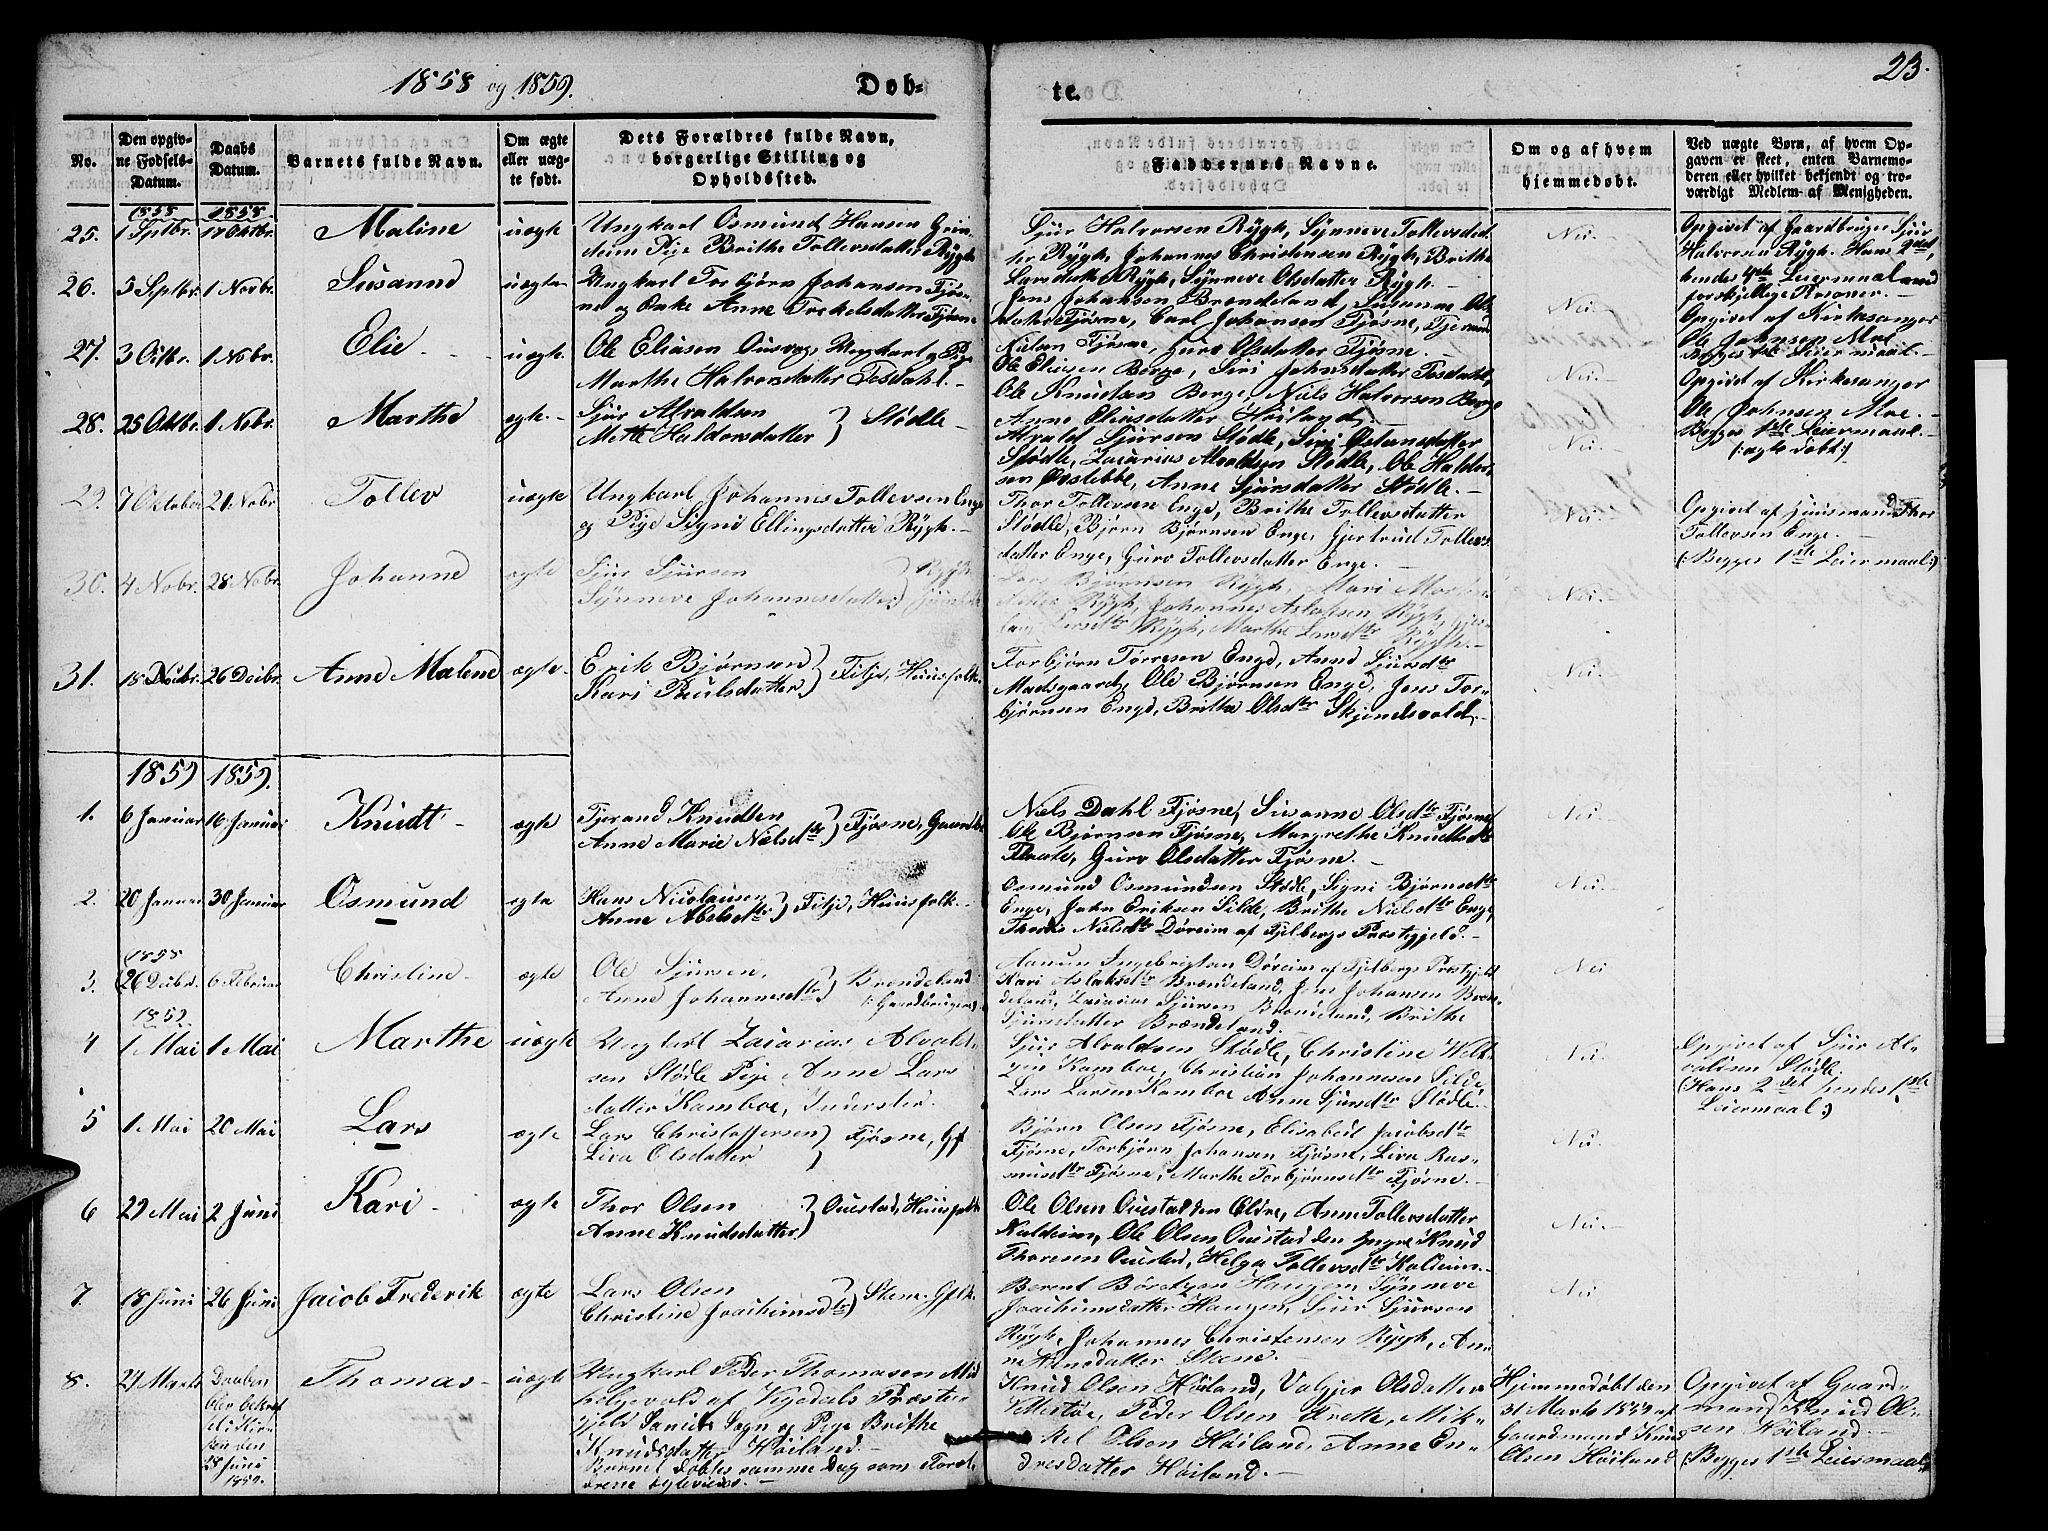 1858 og 1859.
Døb-
te.
23.
No.
Den opgiv-
ne Fødsels-
Datum.
Daabs
Datum.
Barnets fulde Navn.
Om ægte
eller uæg-
te født.
Dets Forældres fulde Navn,
borgerlige Stilling og
Opholdssted.
Faddernes Navne.
Om og af hvem
hjemmedøbt.
Ved uægte Børn, af hvem Op-
gaven er skeet, enten Barnemo-
deren eller hvilket bekjendt og tro-
værdigt Medlem af Menigheden.
1858
1858
25.
1 Septbr.
Maline
uægte
Ungkarl Osmund Hansen
Pige Brithe Tollevsdatter Rygh
Sjur Halvorsen Rygh, Synneve Tollevsdat-
ter Rygh, Johannes Christensen Rygh, Brithe
Larsdatter Rygh, Synneve Olsdatter Rygh.
Nei.
Opgivet af Gaardbruger Sjur
Halvorsen Rygh. Hans 2det,
hendes 4de Leiermaal med
forskjellige Personer.
26.
5 Septbr.
1 Novbr.
Susanne
uægte
Ungkarl Torbjørn Johansen Fjøs-
ne og Enke Anne Torkelsdatter Fjøsne
Jens Johansen Brendeland, Susanne Ols-
datter Fjøsne, Carl Johansen Fjøsne, Tjerand
Nielsen Fjøsne, Guro Olsdatter Fjøsne.
Nei.
Opgivet af Kirkesanger
Ole Johnsen Moe
Begges 1ste Leiermaal.
27.
3 Octbr.
1 Nobr.
Elie
uægte
Ole Eliasen Ousvag, Ungkarl og Pige
Marthe Halvorsdatter Tesdahl.
Ole Eliesen Berge, Siri Johnsdatter Tesdahl,
Ole Knudsen Berge, Niels Halvorsen Berge
Anne Eliasdatter Høiland.
Nei.
Opgivet af Kirkesanger
Ole Johnsen Moe.
Begges 1ste Leiermaal.
(:ægte døbt:)
28.
25 Oktbr.
1 Nobr.
Marthe
ægte
Sjur Alvaldsen
Mette Haldorsdatter } Stødle
Alvald Sjursen Stødle, Siri Østensdatter
Stødle, Zacarias Alvaldsen Stødle, Ole Haldor-
sen Østebbe, Anne Sjursdatter Stødle.
Nei.
29.
7 October
21 Nobr
Tollev
uægte
Ungkarl Johannes Tollevsen Enge
og Pige Signi Ellingsdatter Rygh.
Thor Tollevsen Enge, Brithe Tollevsdatter
Stødle, Bjørn Bjørnsen Enge, Gjertrud Tollevs-
datter Enge, Guro Tollevsdatter Enge.
Nei.
Opgivet af Huusmand Thor
Tollevsen Enge.
(:Begges 1ste Leiermaal:)
30.
4 Nobr.
28 Nobr.
Johanne
ægte
Sjur Sjursen
Synneve Johannesdatter } Rygh
Lars Bjørnsen Rygh, Mari
Rygh, Johannes Aslaksen Rygh,
Larsdtr Rygh, Marthe Larsdtr Rygh.
Nei.
31.
26 Decbr.
Anne Malene
ægte
Erik Bjørnsen
Kari Paulsdatter } Fitje, Huusfolk.
Torbjørn Torresen Enge, Anne Sjursdtr
Madsgaard, Ole Bjørnsen Enge, Jens Tor-
bjørnsen Enge, Brithe Olsdtr Skjendsvold.
Nei.
1859
1859.
1.
6 Januar
16 Januar
Knudt
ægte
Tjerand Knudsen
Anne Marie Nielsdtr } Fjøsne, Gaardbr
Niels Dahl Fjøsne, Susanne Olsdtr Fjøsne,
Ole Bjørnsen Fjøsne, Margrethe Knudsdtr
Guro Olsdatter Fjøsne.
Nei.
2.
20 Januar
30 Januar
Osmund
ægte
Hans Nicolaisen
Anne Abelsdtr } Fitje, Huusfolk.
Osmund Osmundsen Stødle, Signi Bjørnsdtr
Enge, John Eriksen Silde, Brithe Nielsdtr Enge,
Nielsdtr Døreim af Fjelbergs Præstegjeld.
Nei.
1858
3.
(26 Decbr.
6 Februar
Christine
ægte
Ole Sjursen,
Anne Johannesdtr } Brendeland
(: Gaardbruger:)
Ingebrigtsen Døreim af Fjelbergs Prestegjeld
Kari Aslaksdtr Brendeland, Jens Johansen Bren-
deland, Zacarias Sjursen Brendeland, Brithe
Sjursdatter Brændeland.
Nei
1859
4
1 Mai
1 Mai
Marthe
uægte
Ungkarl Zacarias Alvald-
sen Stødle Pige Anne Lars
datter Kamboe, Inderster
Sjur Alvaldsen Stødle, Christine
Kamboe, Christian Johannesen Silde,
Lars Larsen Kamboe Anne Sjursdtr Stødle.
Nei.
Opgivet af Sjur Al-
valdsen Stødle.
(Hans 2det hendes 1ste
Leiermaal:)
5
1 Mai
20 Mai
Lars
ægte
Lars Christoffersen
Liva Olsdatter } Fjøsne, Gf
Bjørn Olsen Fjøsne, Elisabeth Jacobsdtr
Fjøsne, Torbjørn Johansen Fjøsne, Liva Ras-
musdtr Fjøsne, Marthe Torbjørnsdtr Fjøsne.
Nei.
6
29 Mai
2 Juni
Kari
ægte
Thor Olsen
Anne Knudsdatter } Ouestad, Huusfolk
Ole Olsen Ouestad den Eldre, Anne Tollevsdatter
Kaldeim, Ole Olsen Ouestad den Yngre Knud
Thoresen Ouestad, Helga Tollevsdtr Kaldeim.
Nei.
7.
18 Juni
26 Juni
Jacob Frederik
ægte
Lars Olsen
Christine Joachimsdtr } Steene. Gflk.
Berent Børetsen Haugen, Synneve
Joachimsdatter Haugen, Sjur Sjursen
Rygh, Johannes Christensen Rygh, An-
ne Hansdatter Steene.
Nei
8.
29 Marts
Daaben
blev bekræf-
tet i Kir-
ken den
28 Juni
1859.
Thomas
uægte
Ungkarl Peder Thomasen Mid
helgevold af Vigedals Præste-
gjeld Sands Sogn og Pige Brithe
Knudsdatter Høiland.
Barnet døbtes samme Dag som Foræl-
drene ægtevies.
Knud Olsen Høiland, Valgjer Olsdatter
Vettestøe, Peder Olsen Frette, Mik-
kel Olsen Høiland, Anne En-
dresdatter Høiland.
Hjemmedøbt den
31 Marts 1859 af
Gaardmand Knud
Olsen Høiland
Opgivet af Gaard-
mand Knud Ol-
sen Høiland.
(:Begges 1ste Leiermaal:)